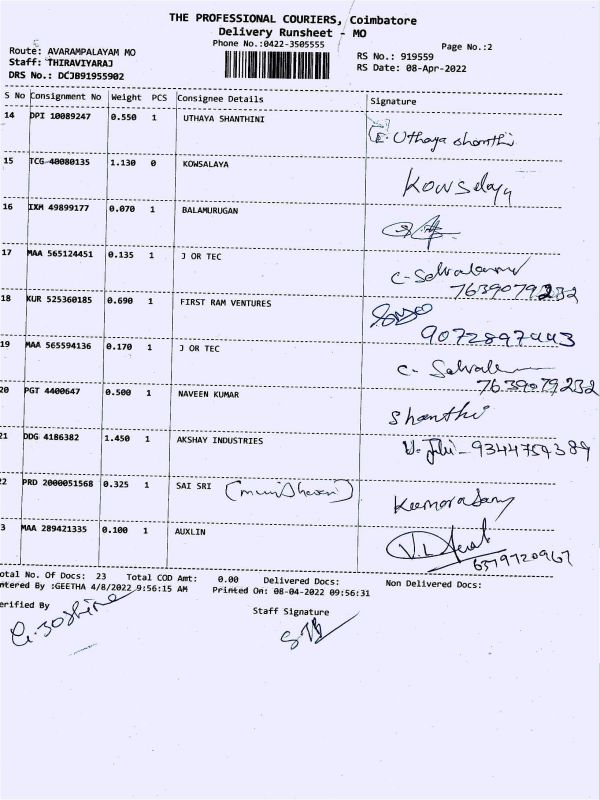 THE PROFESSIONAL COURIERS, Coimbatore
Delivery Runsheet - MO
Phone No.:0422-3505555
Page No.:2
Route: AVARAMPALAYAM MO
RS No.: 919559
Staff: THIRAVIYARAJ
RS Date: 08-Apr-2022
DRS No.: DCJB91955902
S No Consignment No Weight PCS Consignee Details Signature
14 DPI 10089247 0.550 1 UTHAYA SHANTHINI
E. Uthaya shanthi
15 TCG 40080135 1.130 0 KOWSALAYA
Kowsalaya
16 IXM 49899177 0.070 1 BALAMURUGAN
17 MAA 565124451 0.135 1 J OR TEC
7639079232
18 KUR 525360185 0.690 1 FIRST RAM VENTURES
9072897443
19 MAA 565594136 0.170 1 J OR TEC
7639079232
20 PGT 4400647 0.500 1 NAVEEN KUMAR
Shanthi
21 DDG 4186382 1.450 1 AKSHAY INDUSTRIES
9344759389
22 PRD 2000051568 0.325 1 SAI SRI
3 MAA 289421335 0.100 1 AUXLIN
6379720967
otal No. Of Docs: 23 Total COD Amt: 0.00 Delivered Docs: Non Delivered Docs:
ntered By :GEETHA 4/8/2022 9:56:15 AM Printed On: 08-04-2022 09:56:31
erified By
Staff Signature